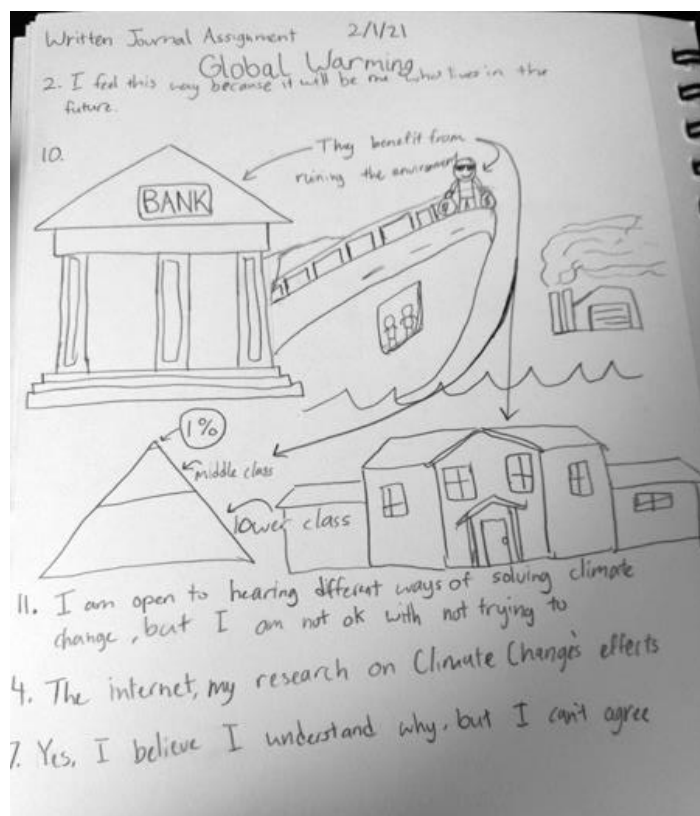 Written Journal Assignment 2/1/21
Global Warming
2. I feel this way because it will be me who lives in the
future.
10.
They benefit from
ruining the environment
BANK
1%
middle class
lower class
11. I am open to hearing different ways of solving climate
change, but I am not ok with not trying to
4. The internet, my research on Climate Change's effects
7. Yes, I believe I understand why, but I can't agree